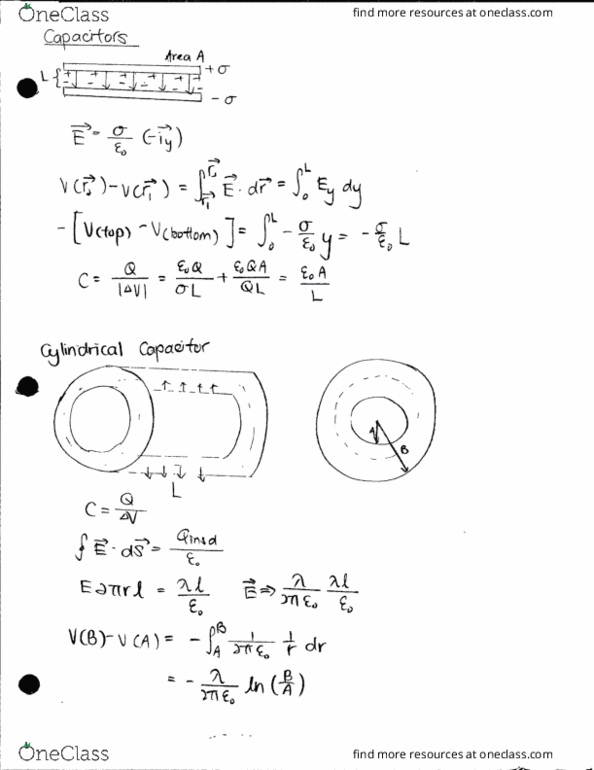 OneClass find more resources at oneclass.com
Capacitors
Area A
+σ
L
−σ
E⃗ = σ/ε₀ (−i⃗y)
V(r⃗₂) − V(r⃗₁) = ∫_r⃗₁^r⃗₂ E⃗ · dr⃗ = ∫₀^L Ey dy
−[V(top) − V(bottom)] = ∫₀^L − σ/ε₀ y = − σ/ε₀ L
C = Q/|ΔV| = ε₀Q/σL + ε₀QA/QL = ε₀A/L
Cylindrical Capacitor
A
B
L
C = Q/ΔV
∮ E⃗ · dS⃗ = Qinsd/ε₀
E2πrl = λl/ε₀ E⃗ ⇒ λ/2πε₀ λl/ε₀
V(B) − V(A) = − ∫_A^B 1/2πε₀ 1/r dr
= − λ/2πε₀ ln(B/A)
OneClass find more resources at oneclass.com